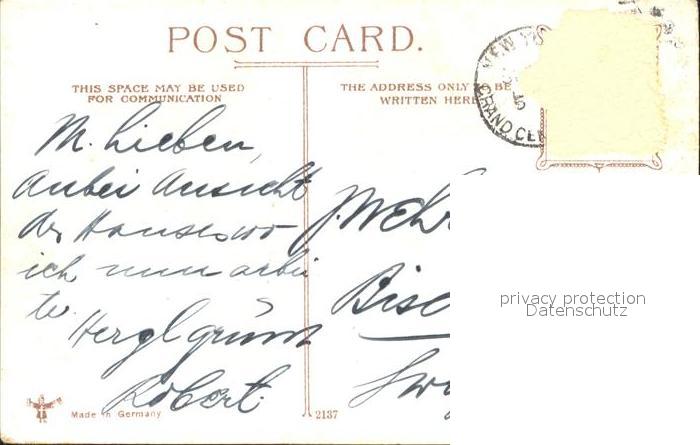 POST CARD.
THIS SPACE MAY BE USED
FOR COMMUNICATION
THE ADDRESS ONLY TO BE
WRITTEN HERE
NEW YO
GRAND CEN
M. Lieben,
Anbei Ansicht
des Hauses wo
ich nun arbei
te.
Herzl grüsst
Robert.
J. Wehr
Bisc
Swi
privacy protection
Datenschutz
Made in Germany
2137